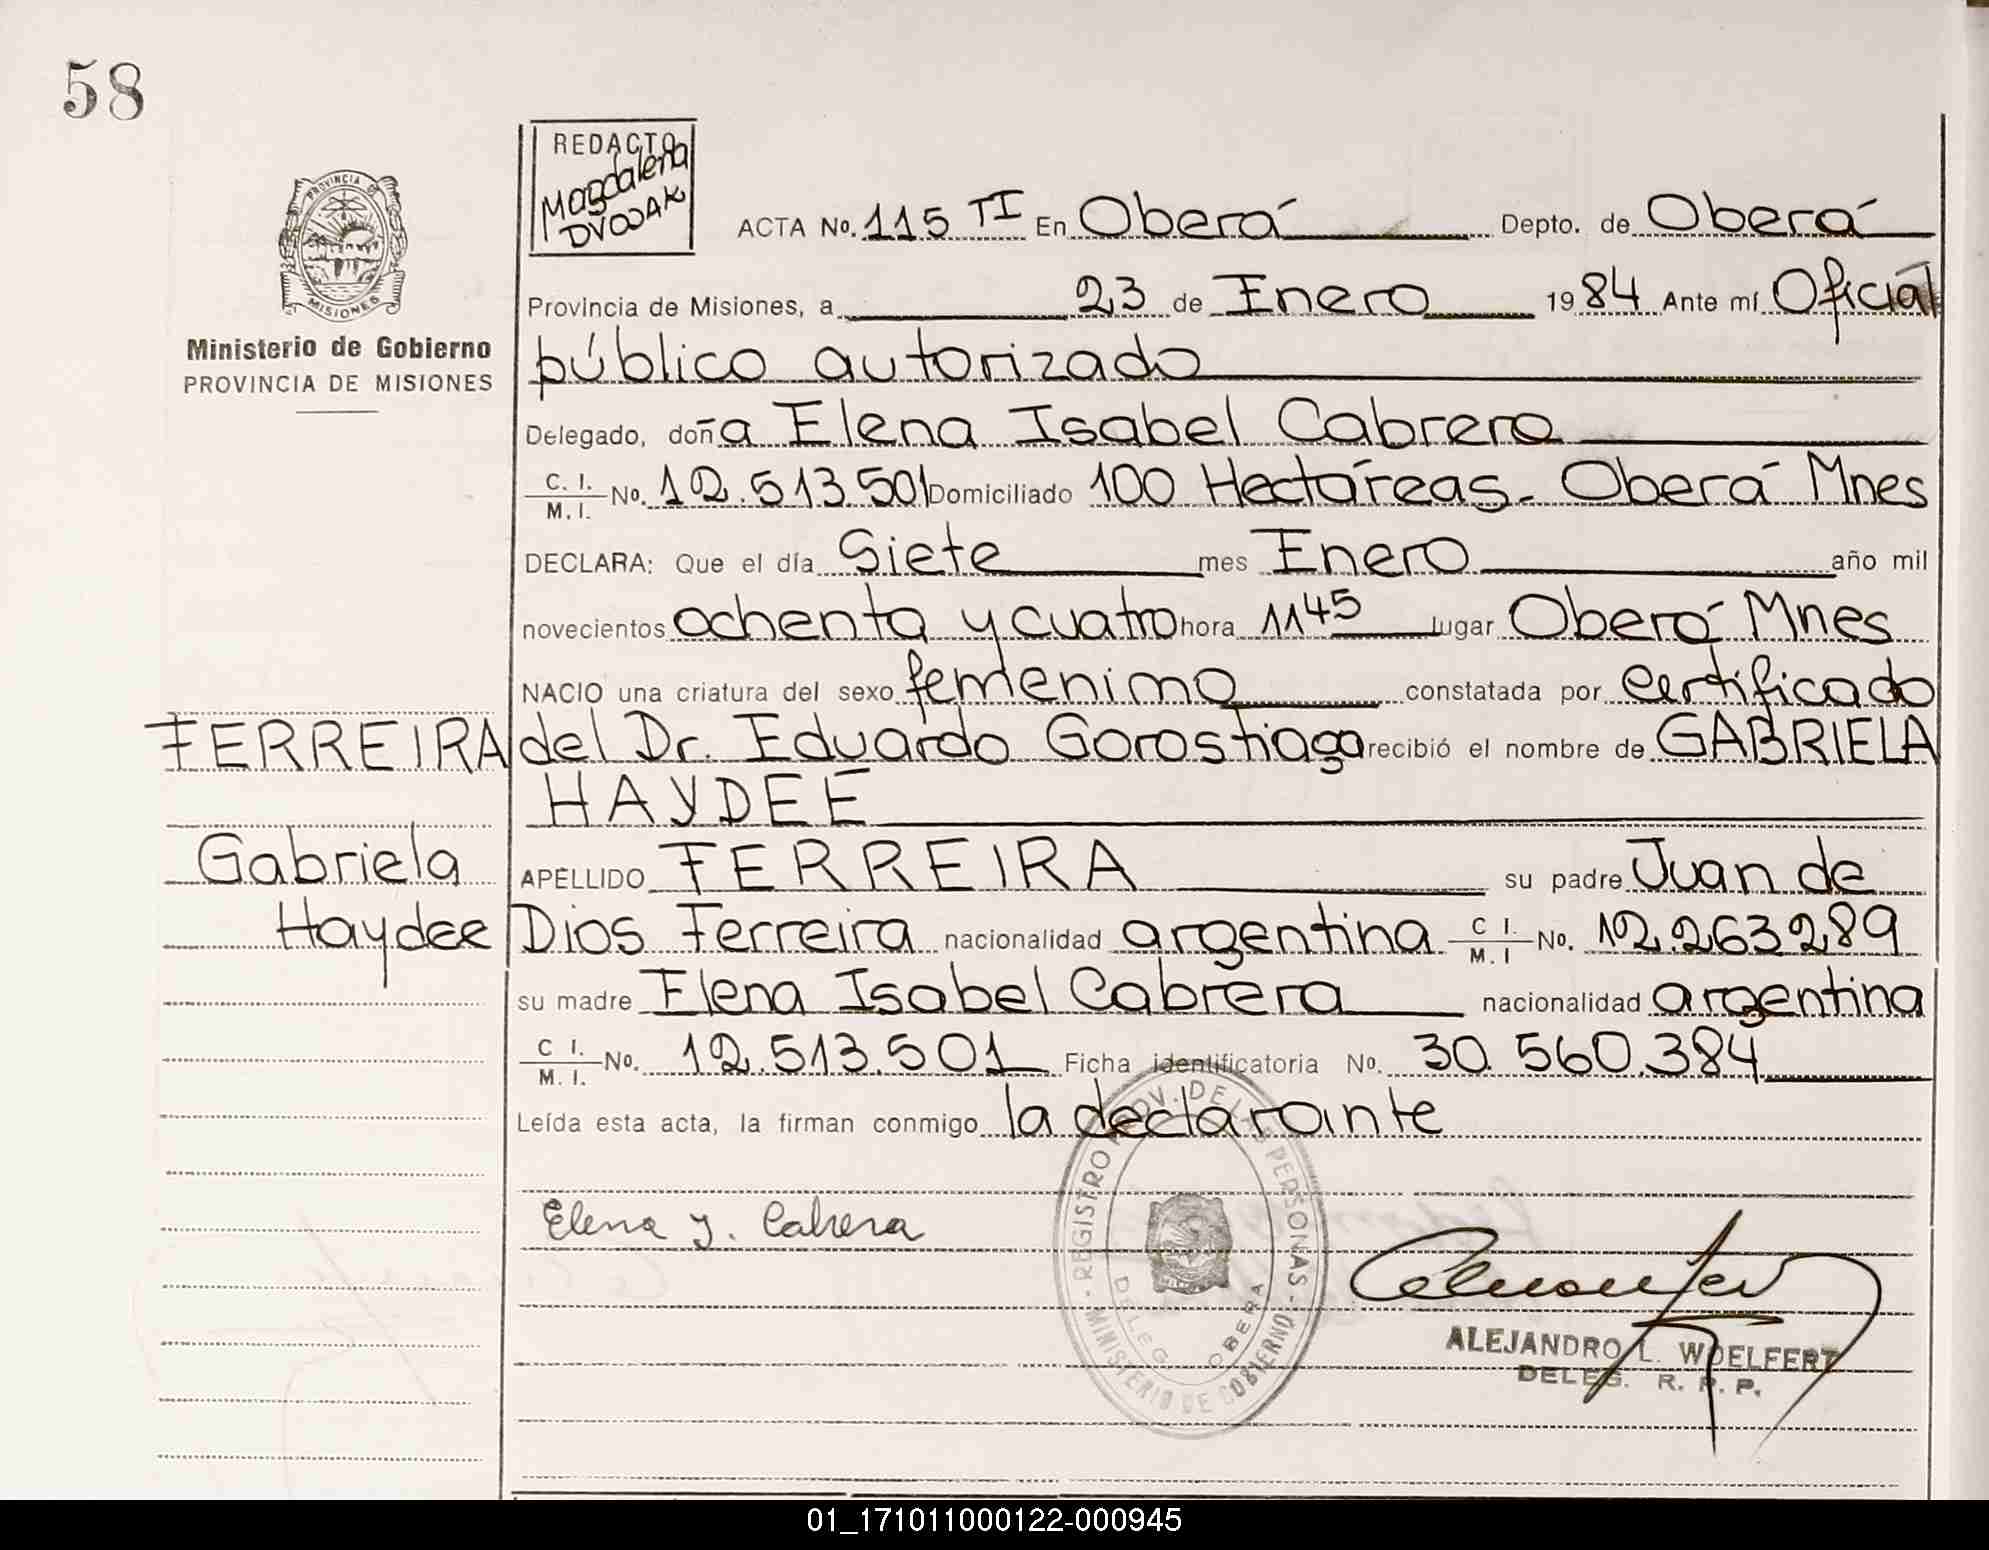 58
REDACTO
Magdalena
DVOJAK
PROVINCIA DE
MISIONES
Ministerio de Gobierno
PROVINCIA DE MISIONES
ACTA No. 115 TI En Oberá Depto. de Oberá
Provincia de Misiones, a 23 de Enero 1984 Ante mí Oficial
público autorizado
Delegado, doña Elena Isabel Cabrera
C. I. / M. I. No. 12.513.501 Domiciliado 100 Hectáreas - Oberá Mnes
DECLARA: Que el día Siete mes Enero año mil
novecientos ochenta y cuatro hora 11 45 lugar Oberá Mnes
NACIO una criatura del sexo femenimo constatada por certificado
FERREIRA del Dr. Eduardo Gorostiaga recibió el nombre de GABRIELA
HAYDEÉ
Gabriela APELLIDO FERREIRA su padre Juan de
Haydee Dios Ferreira nacionalidad argentina C I. / M. I No. 12.263289
su madre Elena Isabel Cabrera nacionalidad argentina
C I. / M. I. No. 12.513.501 Ficha identificatoria No. 30.560.384
Leída esta acta, la firman conmigo la declarante
Elena Y. Cabrera
REGISTRO PROV. DE LAS PERSONAS - MINISTERIO DE GOBIERNO -
DELEG. OBERA
ALEJANDRO L. WOELFERT
DELEG. R. P. P.
01_171011000122-000945